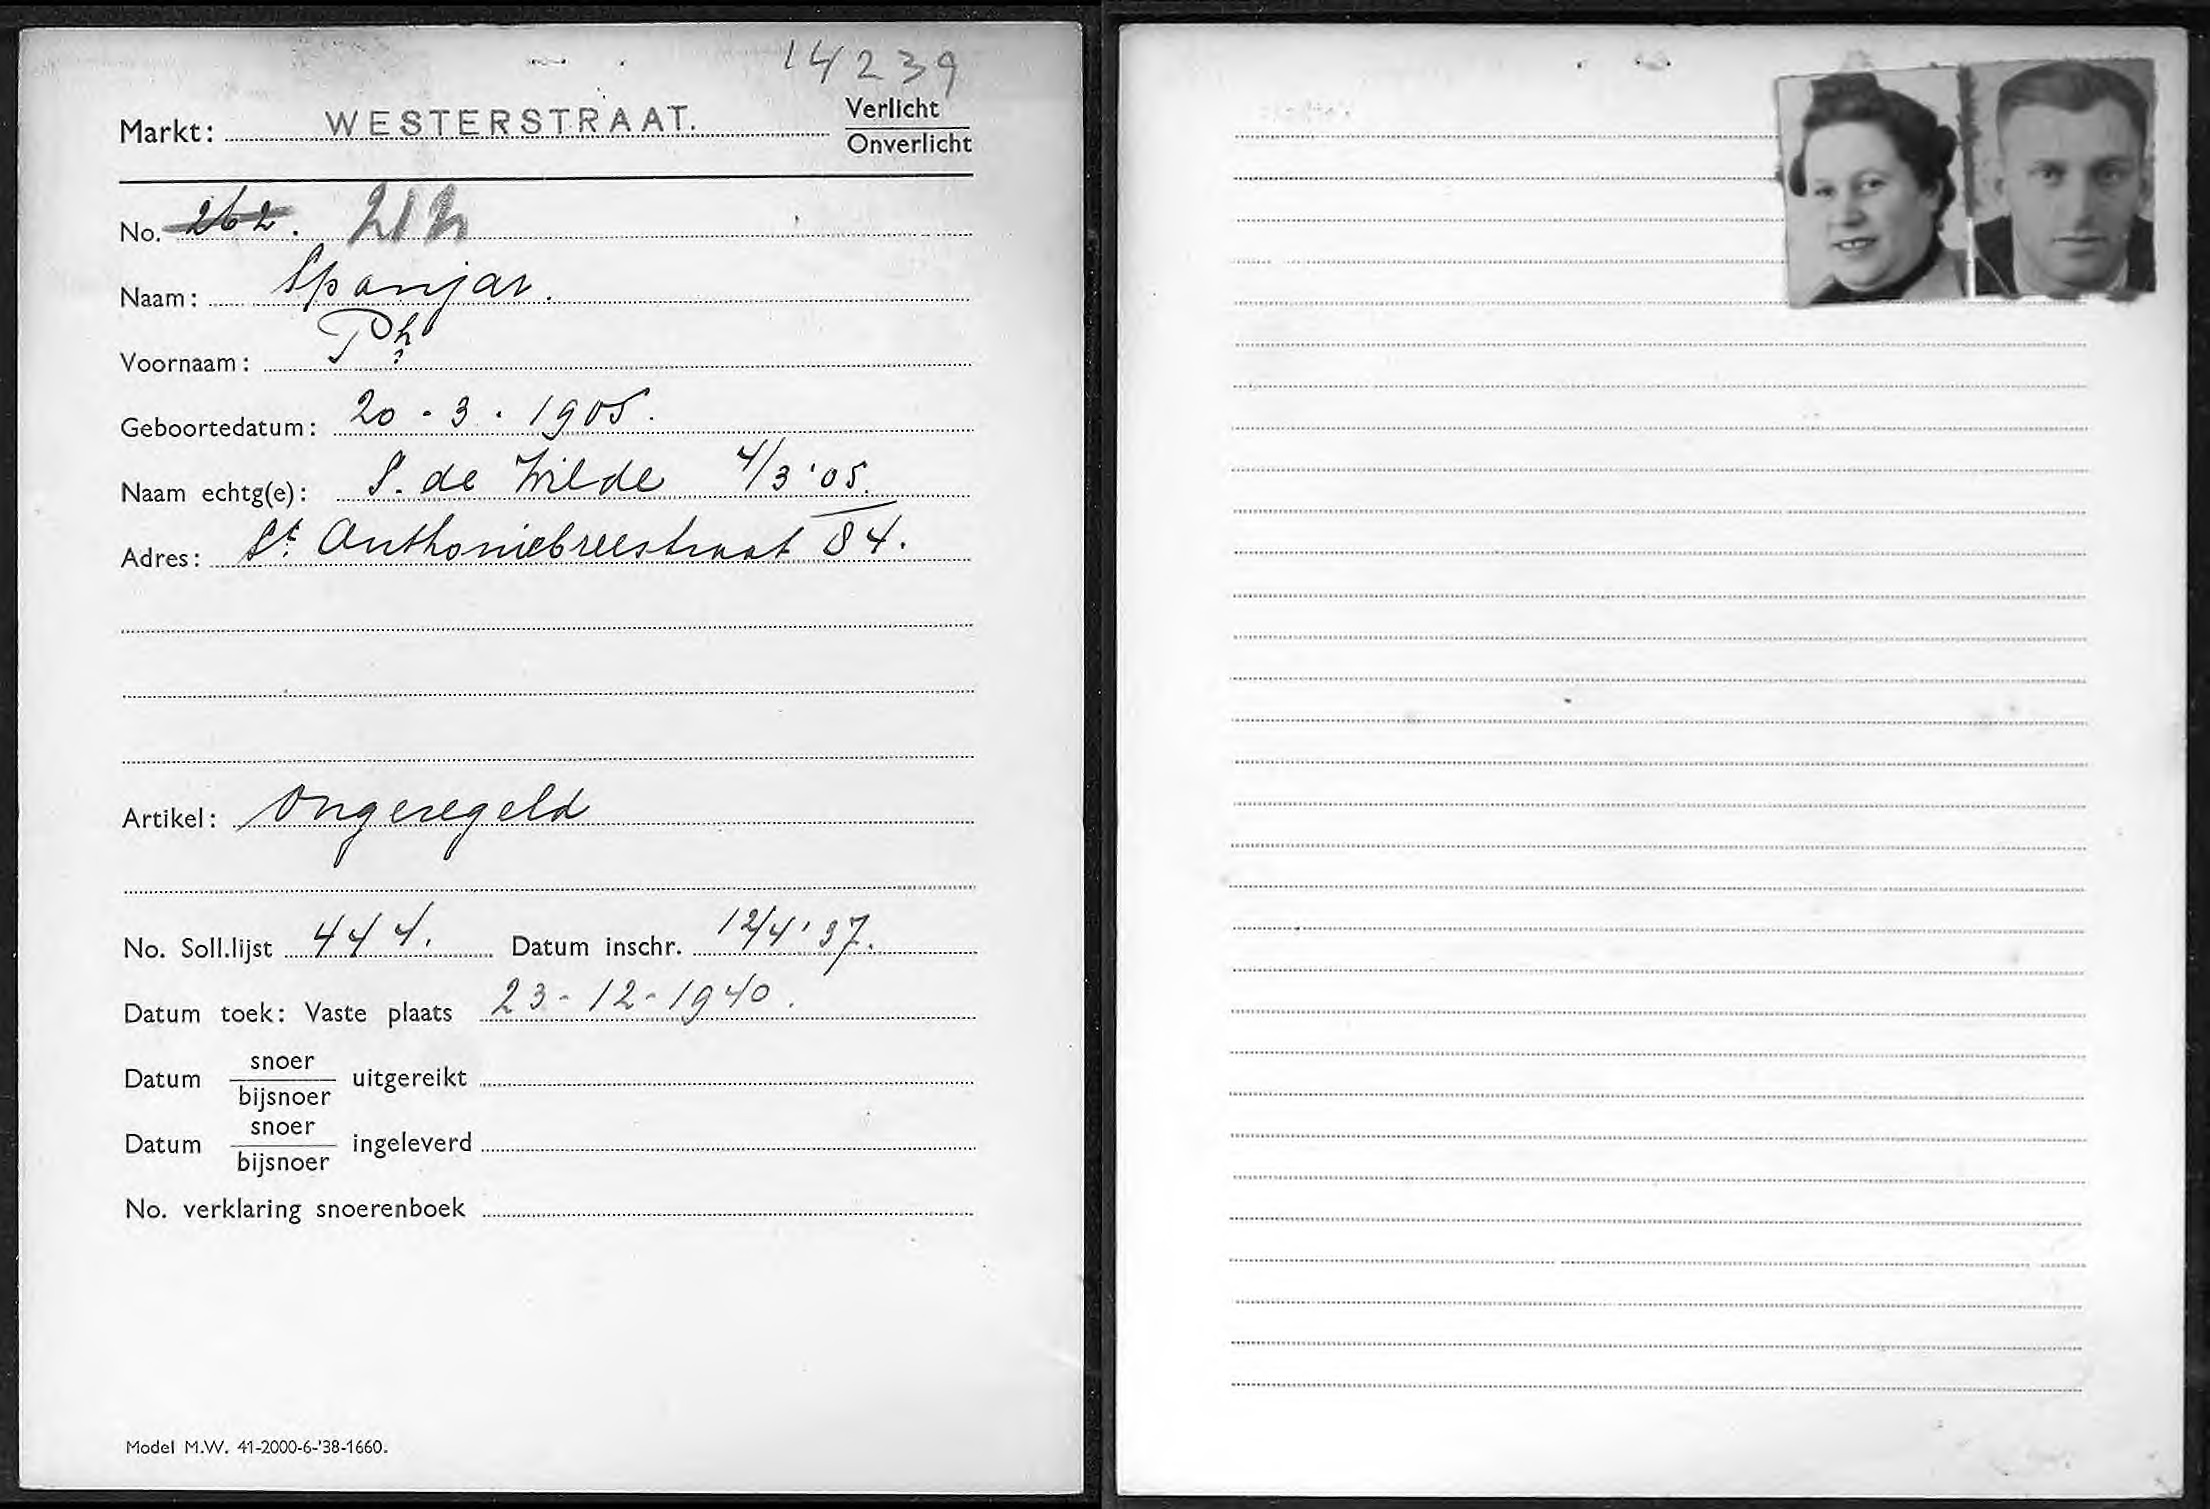 14239
Markt: WESTERSTRAAT. Verlicht
Onverlicht
No. 262. 212
Naam: Spanjar.
Voornaam: Ph
Geboortedatum: 20 - 3 - 1905.
Naam echtg(e): S. de Wilde 4/3 '05.
Adres: St. Anthoniebreestraat 84.
Artikel: Ongeregeld
No. Soll.lijst 444. Datum inschr. 12/4 '37.
Datum toek: Vaste plaats 23-12-1940.
Datum snoer
bijsnoer uitgereikt
Datum snoer
bijsnoer ingeleverd
No. verklaring snoerenboek
Model M.W. 41-2000-6-'38-1660.